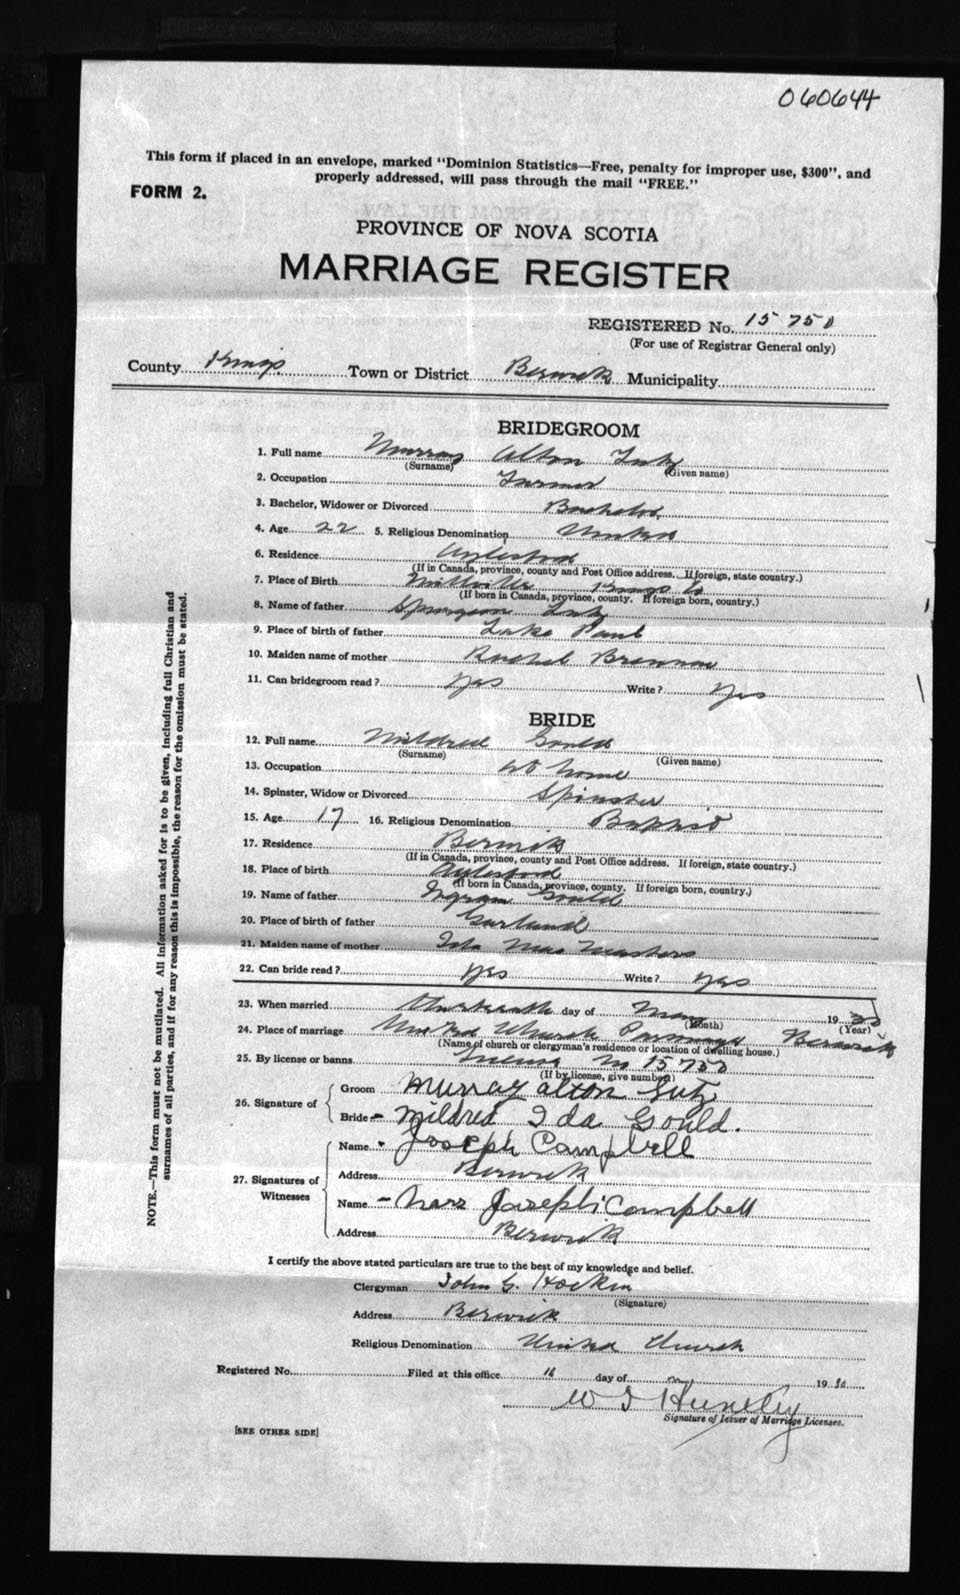 060644
This form if placed in an envelope, marked "Dominion Statistics—Free, penalty for improper use, $300", and
properly addressed, will pass through the mail "FREE."
FORM 2.
PROVINCE OF NOVA SCOTIA
MARRIAGE REGISTER
REGISTERED No. 15750
(For use of Registrar General only)
County Kings Town or District Berwick Municipality
BRIDEGROOM
1. Full name Murray Alton Lutz
(Surname) (Given name)
2. Occupation Farmer
3. Bachelor, Widower or Divorced Bachelor
4. Age 22 5. Religious Denomination United
6. Residence Aylesford
(If in Canada, province, county and Post Office address. If foreign, state country.)
7. Place of Birth Millville Kings Co
(If born in Canada, province, county. If foreign born, country.)
8. Name of father Spurgeon Lutz
9. Place of birth of father Lake Paul
10. Maiden name of mother Rachel
11. Can bridegroom read? yes Write? yes
BRIDE
12. Full name Mildred Gould
(Surname) (Given name)
13. Occupation at home
14. Spinster, Widow or Divorced Spinster
15. Age 17 16. Religious Denomination Baptist
17. Residence Berwick
(If in Canada, province, county and Post Office address. If foreign, state country.)
18. Place of birth Aylesford
(If born in Canada, province, county. If foreign born, country.)
19. Name of father Ingram Gould
20. Place of birth of father Garland
21. Maiden name of mother Ida Mae Masters
22. Can bride read? yes Write? yes
23. When married Thirteenth day of May 1930
(Month) (Year)
24. Place of marriage United Church Parsonage Berwick
(Name of church or clergyman's residence or location of dwelling house.)
25. By license or banns License No 15750
(If by license, give number)
26. Signature of
Groom Murray Alton Lutz
Bride Mildred Ida Gould.
27. Signatures of Witnesses
Name Joseph Campbell
Address Berwick
Name Mars Joseph Campbell
Address Berwick
I certify the above stated particulars are true to the best of my knowledge and belief.
Clergyman John G. Hockin
(Signature)
Address Berwick
Religious Denomination United Church
Registered No. Filed at this office 16 day of 1930
W I Huntley
Signature of Issuer of Marriage Licenses.
[SEE OTHER SIDE]
NOTE.—This form must not be mutilated. All information asked for is to be given, including full Christian and
surnames of all parties, and if for any reason this is impossible, the reason for the omission must be stated.